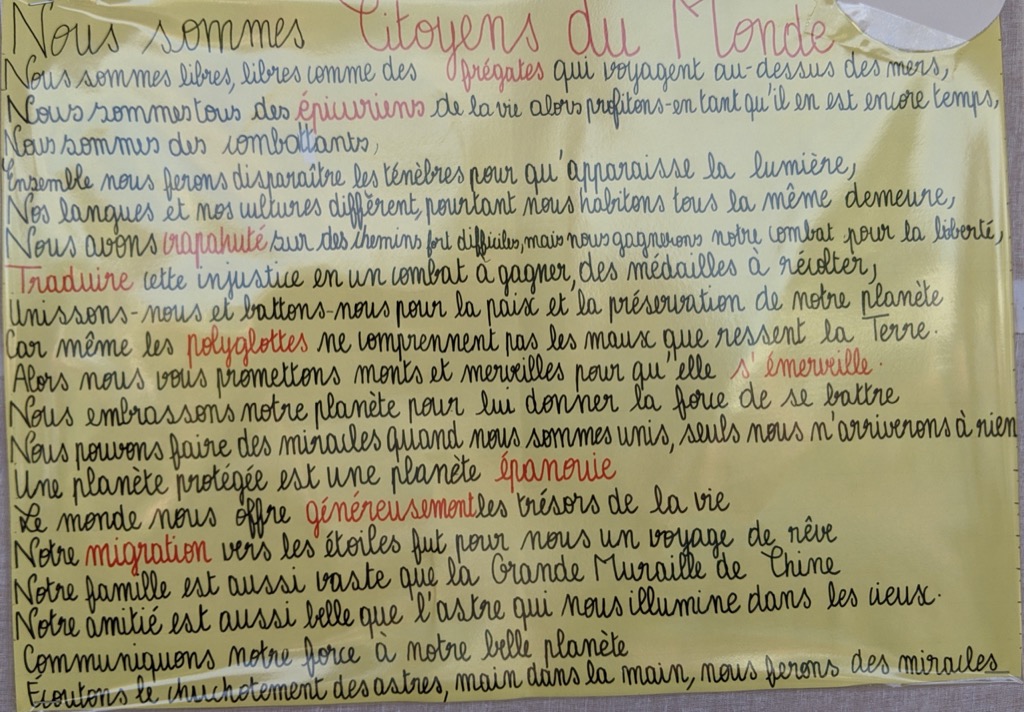 Nous sommes Citoyens du Monde
Nous sommes libres, libres comme des frégates qui voyagent au-dessus des mers,
Nous sommes tous des épicuriens de la vie alors profitons-en tant qu'il en est encore temps,
Nous sommes des combattants,
Ensemble nous ferons disparaître les ténèbres pour qu'apparaisse la lumière,
Nos langues et nos cultures diffèrent, pourtant nous habitons tous la même demeure,
Nous avons crapahuté sur des chemins fort difficiles, mais nous gagnerons notre combat pour la liberté,
Traduire cette injustice en un combat à gagner, des médailles à récolter,
Unissons-nous et battons-nous pour la paix et la préservation de notre planète
Car même les polyglottes ne comprennent pas les maux que ressent la Terre.
Alors nous vous promettons monts et merveilles pour qu'elle s'émerveille.
Nous embrassons notre planète pour lui donner la force de se battre
Nous pouvons faire des miracles quand nous sommes unis, seuls nous n'arriverons à rien
Une planète protégée est une planète épanouie
Le monde nous offre généreusement les trésors de la vie
Notre migration vers les étoiles fut pour nous un voyage de rêve
Notre famille est aussi vaste que la Grande Muraille de Chine
Notre amitié est aussi belle que l'astre qui nous illumine dans les cieux.
Communiquons notre force à notre belle planète
Écoutons le chuchotement des astres, main dans la main, nous ferons des miracles